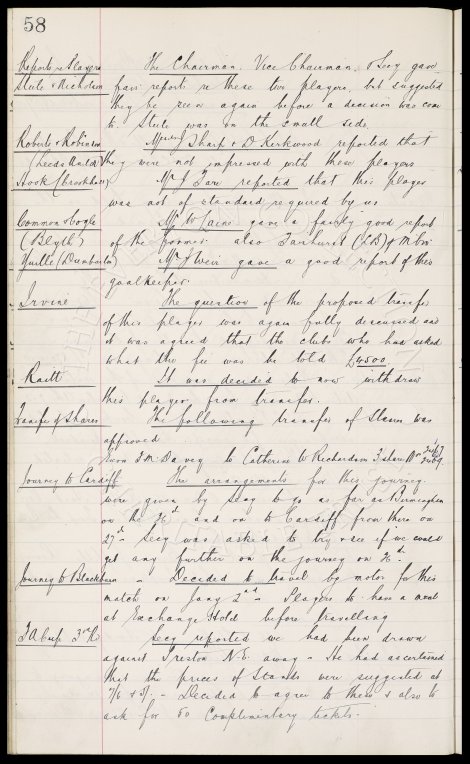 58
Reports re Players The Chairman, Vice Chairman & Secy gave
Steele & Nicholson fair reports re these two players, but suggested
they be seen again before a decision was come
to. Steele was on the small side.
Roberts & Robinson Messrs J Sharp & D. Kirkwood reported that
(Leeds United) they were not impressed with these players
Hook (Brookhouse) Mr J Fare reported that this player
was not of standard required by us
Common & Bogle Mr W Gaine gave a fairly good report
(Blyth) of the former also Fairhurst (LB) &
Quille (Dumbarton) Mr J Weir gave a good report of this
goalkeeper.
Irvine The question of the proposed transfer
of this player was again fully discussed and
it was agreed that the club who had asked
what the fee was be told £4500.
Raitt It was decided to now withdraw
this player from transfer.
Transfer of Shares The following transfer of Shares was
approved
from J. M. Davey to Catherine W Richardson 3 shares
Journey to Cardiff The arrangements for this journey
were given by Secy to go as far as Birmingham
on the 26th and on to Cardiff from there on
27th. Secy was asked to try & see if we could
get any further on the journey on 26th.
Journey to Blackburn - Decided to travel by motor for this
match on Jany 2nd - Players to have a meal
at Exchange Hotel before travelling
F A Cup 3rd R Secy reported we had been drawn
against Preston N.E. away - He had ascertained
that the prices of Stands were suggested at
7/6 & 5/- - Decided to agree to them & also to
ask for 50 Complimentary tickets.